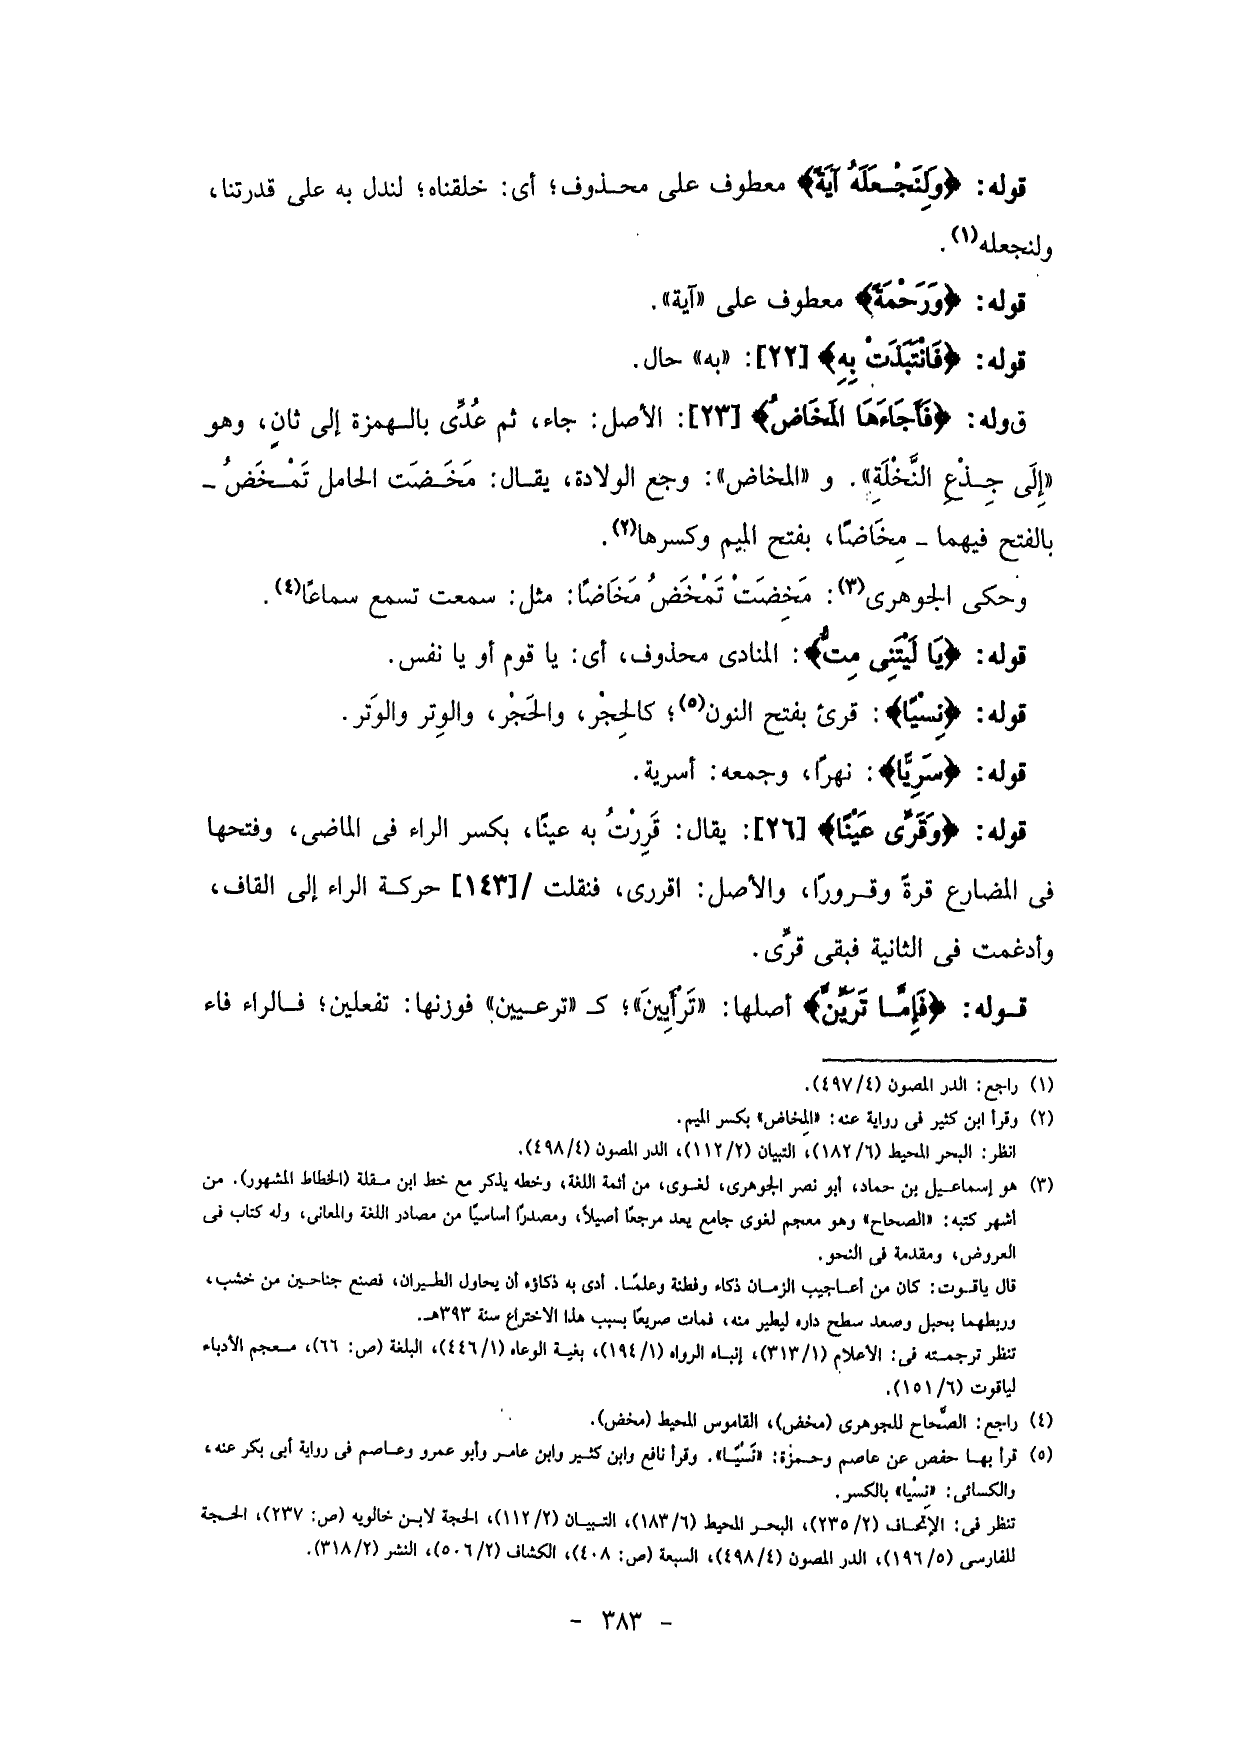 قوله: ﴿وَلِنَجْعَلَهُ آيَةً﴾ معطوف على محذوف؛ أى: خلقناه؛ لندل به على قدرتنا،
ولنجعله(١).
قوله: ﴿وَرَحْمَةً﴾ معطوف على «آية».
قوله: ﴿فَانْتَبَذَتْ بِهِ﴾ [٢٢]: «به» حال.
قوله: ﴿فَأَجَاءَهَا الْمَخَاضُ﴾ [٢٣]: الأصل: جاء، ثم عُدِّى بالهمزة إلى ثانٍ، وهو
«إِلَى جِذْعِ النَّخْلَةِ». و «المخاض»: وجع الولادة، يقال: مَخَضَت الحامل تَمْخَضُ ـ
بالفتح فيهما ـ مِخَاضًا، بفتح الميم وكسرها(٢).
وحكى الجوهرى(٣): مَخِضَتْ تَمْخَضُ مَخَاضًا: مثل: سمعت تسمع سماعًا(٤).
قوله: ﴿يَا لَيْتَنِى مِتُّ﴾: المنادى محذوف، أى: يا قوم أو يا نفس.
قوله: ﴿نِسْيًا﴾: قرئ بفتح النون(٥)؛ كالحِجْر، والحَجْر، والوِتر والوَتر.
قوله: ﴿سَرِيًّا﴾: نهرًا، وجمعه: أسرية.
قوله: ﴿وَقَرِّى عَيْنًا﴾ [٢٦]: يقال: قَرِرْتُ به عينًا، بكسر الراء فى الماضى، وفتحها
فى المضارع قرةً وقرورًا، والأصل: اقررى، فنقلت /[١٤٣] حركة الراء إلى القاف،
وأدغمت فى الثانية فبقى قرِّى.
قوله: ﴿فَإِمَّا تَرَيِنَّ﴾ أصلها: «تَرْأَيِينَ»؛ كـ «ترعيين» فوزنها: تفعلين؛ فالراء فاء
(١) راجع: الدر المصون (٤/٤٩٧).
(٢) وقرأ ابن كثير فى رواية عنه: «المِخاض» بكسر الميم.
انظر: البحر المحيط (٦/١٨٢)، التبيان (٢/١١٢)، الدر المصون (٤/٤٩٨).
(٣) هو إسماعيل بن حماد، أبو نصر الجوهرى، لغوى، من أئمة اللغة، وخطه يذكر مع خط ابن مقلة (الخطاط المشهور). من
أشهر كتبه: «الصحاح» وهو معجم لغوى جامع يعد مرجعًا أصيلاً، ومصدرًا أساسيًا من مصادر اللغة والمعانى، وله كتاب فى
العروض، ومقدمة فى النحو.
قال ياقوت: كان من أعاجيب الزمان ذكاء وفطنة وعلمًا. أدى به ذكاؤه أن يحاول الطيران، فصنع جناحين من خشب،
وربطهما بحبل وصعد سطح داره ليطير منه، فمات صريعًا بسبب هذا الاختراع سنة ٣٩٣هـ.
تنظر ترجمته فى: الاعلام (١/٣١٣)، إنباه الرواه (١/١٩٤)، بغية الوعاه (١/٤٤٦)، البلغة (ص: ٦٦)، معجم الأدباء
لياقوت (٦/١٥١).
(٤) راجع: الصِّحاح للجوهرى (مخض)، القاموس المحيط (مخض).
(٥) قرأ بها حفص عن عاصم وحمزة: «نَسْيًا». وقرأ نافع وابن كثير وابن عامر وأبو عمرو وعاصم فى رواية أبى بكر عنه،
والكسائى: «نِسْيا» بالكسر.
تنظر فى: الإتحاف (٢/٢٣٥)، البحر المحيط (٦/١٨٣)، التبيان (٢/١١٢)، الحجة لابن خالويه (ص: ٢٣٧)، الحجة
للفارسى (٥/١٩٦)، الدر المصون (٤/٤٩٨)، السبعة (ص: ٤٠٨)، الكشاف (٢/٥٠٦)، النشر (٢/٣١٨).
- ٣٨٣ -